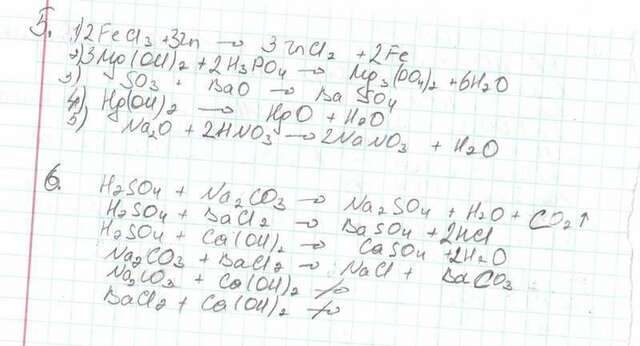 5. 1) 2FeCl₃ + 3Zn → 3ZnCl₂ + 2Fe
2) 3Mg(OH)₂ + 2H₃PO₄ → Mg₃(PO₄)₂ + 6H₂O
3) SO₃ + BaO → BaSO₄
4) Hg(OH)₂ → HgO + H₂O
5) Na₂O + 2HNO₃ → 2NaNO₃ + H₂O
6. H₂SO₄ + Na₂CO₃ → Na₂SO₄ + H₂O + CO₂↑
H₂SO₄ + BaCl₂ → BaSO₄ + 2HCl
H₂SO₄ + Ca(OH)₂ → CaSO₄ + 2H₂O
Na₂CO₃ + BaCl₂ → NaCl + BaCO₃
Na₂CO₃ + Ca(OH)₂ ↛
BaCl₂ + Ca(OH)₂ ↛